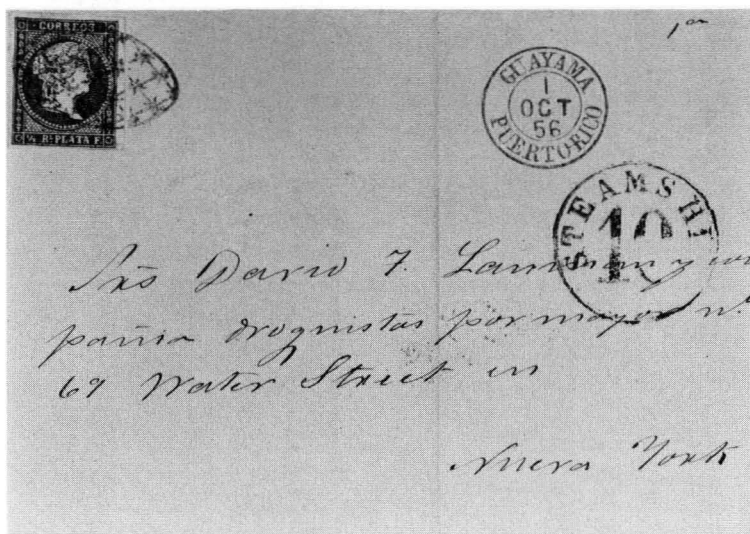 CORREOS
½ Rl. PLATA F.
1
GUAYAMA
1
OCT
56
PUERTO-RICO
STEAMSHI
10
Srs David T. Lanman y com
pañia droguistas por mayor nº
69 Water Street en
Nueva York